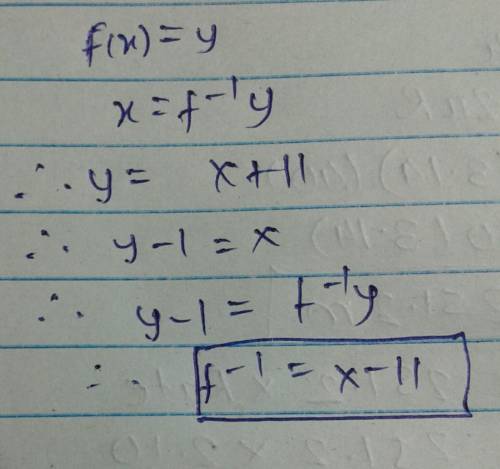 f(x) = y
x = f⁻¹y
∴ y = x+11
∴ y-1 = x
∴ y-1 = f⁻¹y
∴ f⁻¹ = x-11